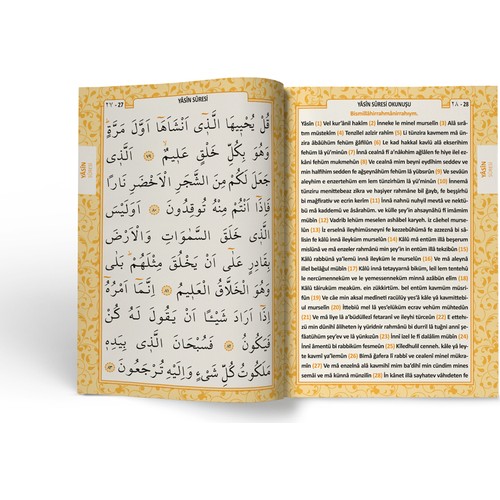 ٢٧ - 27
YÂSÎN SÛRESİ
قُلْ يُحْيِيهَا الَّذِٓي اَنْشَاَهَٓا اَوَّلَ مَرَّةٍ
وَهُوَ بِكُلِّ خَلْقٍ عَلِيمٌ ﴿٧٩﴾ اَلَّذِي
جَعَلَ لَكُمْ مِنَ الشَّجَرِ الْاَخْضَرِ نَارًا
فَاِذَٓا اَنْتُمْ مِنْهُ تُوقِدُونَ ﴿٨٠﴾ اَوَلَيْسَ
الَّذِي خَلَقَ السَّمٰوَاتِ وَالْاَرْضَ
بِقَادِرٍ عَلٰٓى اَنْ يَخْلُقَ مِثْلَهُمْ بَلٰى
وَهُوَ الْخَلَّاقُ الْعَلِيمُ ﴿٨١﴾ اِنَّمَٓا اَمْرُهُٓ
اِذَٓا اَرَادَ شَيْئًا اَنْ يَقُولَ لَهُ كُنْ
فَيَكُونُ ﴿٨٢﴾ فَسُبْحَانَ الَّذِي بِيَدِهِ
مَلَكُوتُ كُلِّ شَيْءٍ وَاِلَيْهِ تُرْجَعُونَ ﴿٨٣﴾
YÂSÎN
SÛRESİ
YÂSÎN SÛRESİ OKUNUŞU
٢٨ - 28
Bismillâhirrahmânirrahıym.
Yâsîn (1) Vel kur'ânil hakîm (2) İnneke le minel murselîn (3) Alâ sırâ-
tım müstekîm (4) Tenzîlel azîzir rahîm (5) Li tünzira kavmem mâ ün-
zira âbâühüm fehüm ğâfilûn (6) Le kad hakkal kavlü alâ ekserihim
fehüm lâ yü'minûn (7) İnnâ cealnâ fî a'nâkıhim ağlâlen fe hiye ilel ez-
kâni fehüm mukmehûn (8) Ve cealnâ mim beyni eydîhim sedden ve
min halfihim sedden fe ağşeynâhüm fehüm lâ yübsırûn (9) Ve sevâün
aleyhim e enzertehüm em lem tünzirhüm lâ yü'minûn (10) İnnemâ
tünziru menittebeaz zikra ve haşiyer rahmâne bil ğayb, fe beşşirhü
bi mağfirativ ve ecrin kerîm (11) İnnâ nahnü nuhyil mevtâ ve nektü-
bü mâ kaddemû ve âsârahüm. ve külle şey'in ahsaynâhü fî imâmim
mübîn (12) Vadrib lehüm meselen ashâbel karyeh. iz câehel murse-
lûn (13) İz erselnâ ileyhimüsneyni fe kezzebûhümâ fe azzeznâ bi sâ-
lisin fe kâlû innâ ileyküm murselûn (14) Kâlû mâ entüm illâ beşerum
mislünâ ve mâ enzeler rahmânü min şey'in in entüm illâ tekzibûn (15)
Kâlû rabbünâ ya'lemü innâ ileyküm le murselûn (16) Ve mâ aleynâ
illel belâğul mübîn (17) Kâlû innâ tetayyarnâ biküm, leil lem tentehû
le nercümenneküm ve le yemessenneküm minnâ azâbün elîm (18)
Kâlû tâiruküm meaküm. ein zükkirtüm. bel entüm kavmüm müsri-
fûn (19) Ve câe min aksal medîneti racülüy yes'â kâle yâ kavmittebi-
ul murselîn (20) İttebiû mel lâ yes'elüküm ecrav vehüm mühtedûn
(21) Ve mâ liye lâ a'büdüllezî fetaranî ve ileyhi türceûn (22) E ettehı-
zü min dûnihî âliheten iy yüridnir rahmânü bi durril lâ tuğni annî şe-
fâatühüm şey'ev ve lâ yünkızûn (23) İnnî izel le fî dalâlim mübîn (24)
İnnî âmentü bi rabbiküm fesmeûn (25) Kîledhulil cenneh. kâle yâ ley-
te kavmî ya'lemûn (26) Bimâ ğafera lî rabbî ve cealenî minel mükra-
mîn (27) Ve mâ enzelnâ alâ kavmihî mim ba'dihî min cündim mines
semâi ve mâ künnâ münzilîn (28) İn kânet illâ sayhatev vâhıdeten fe
YÂSÎN
SÛRESİ